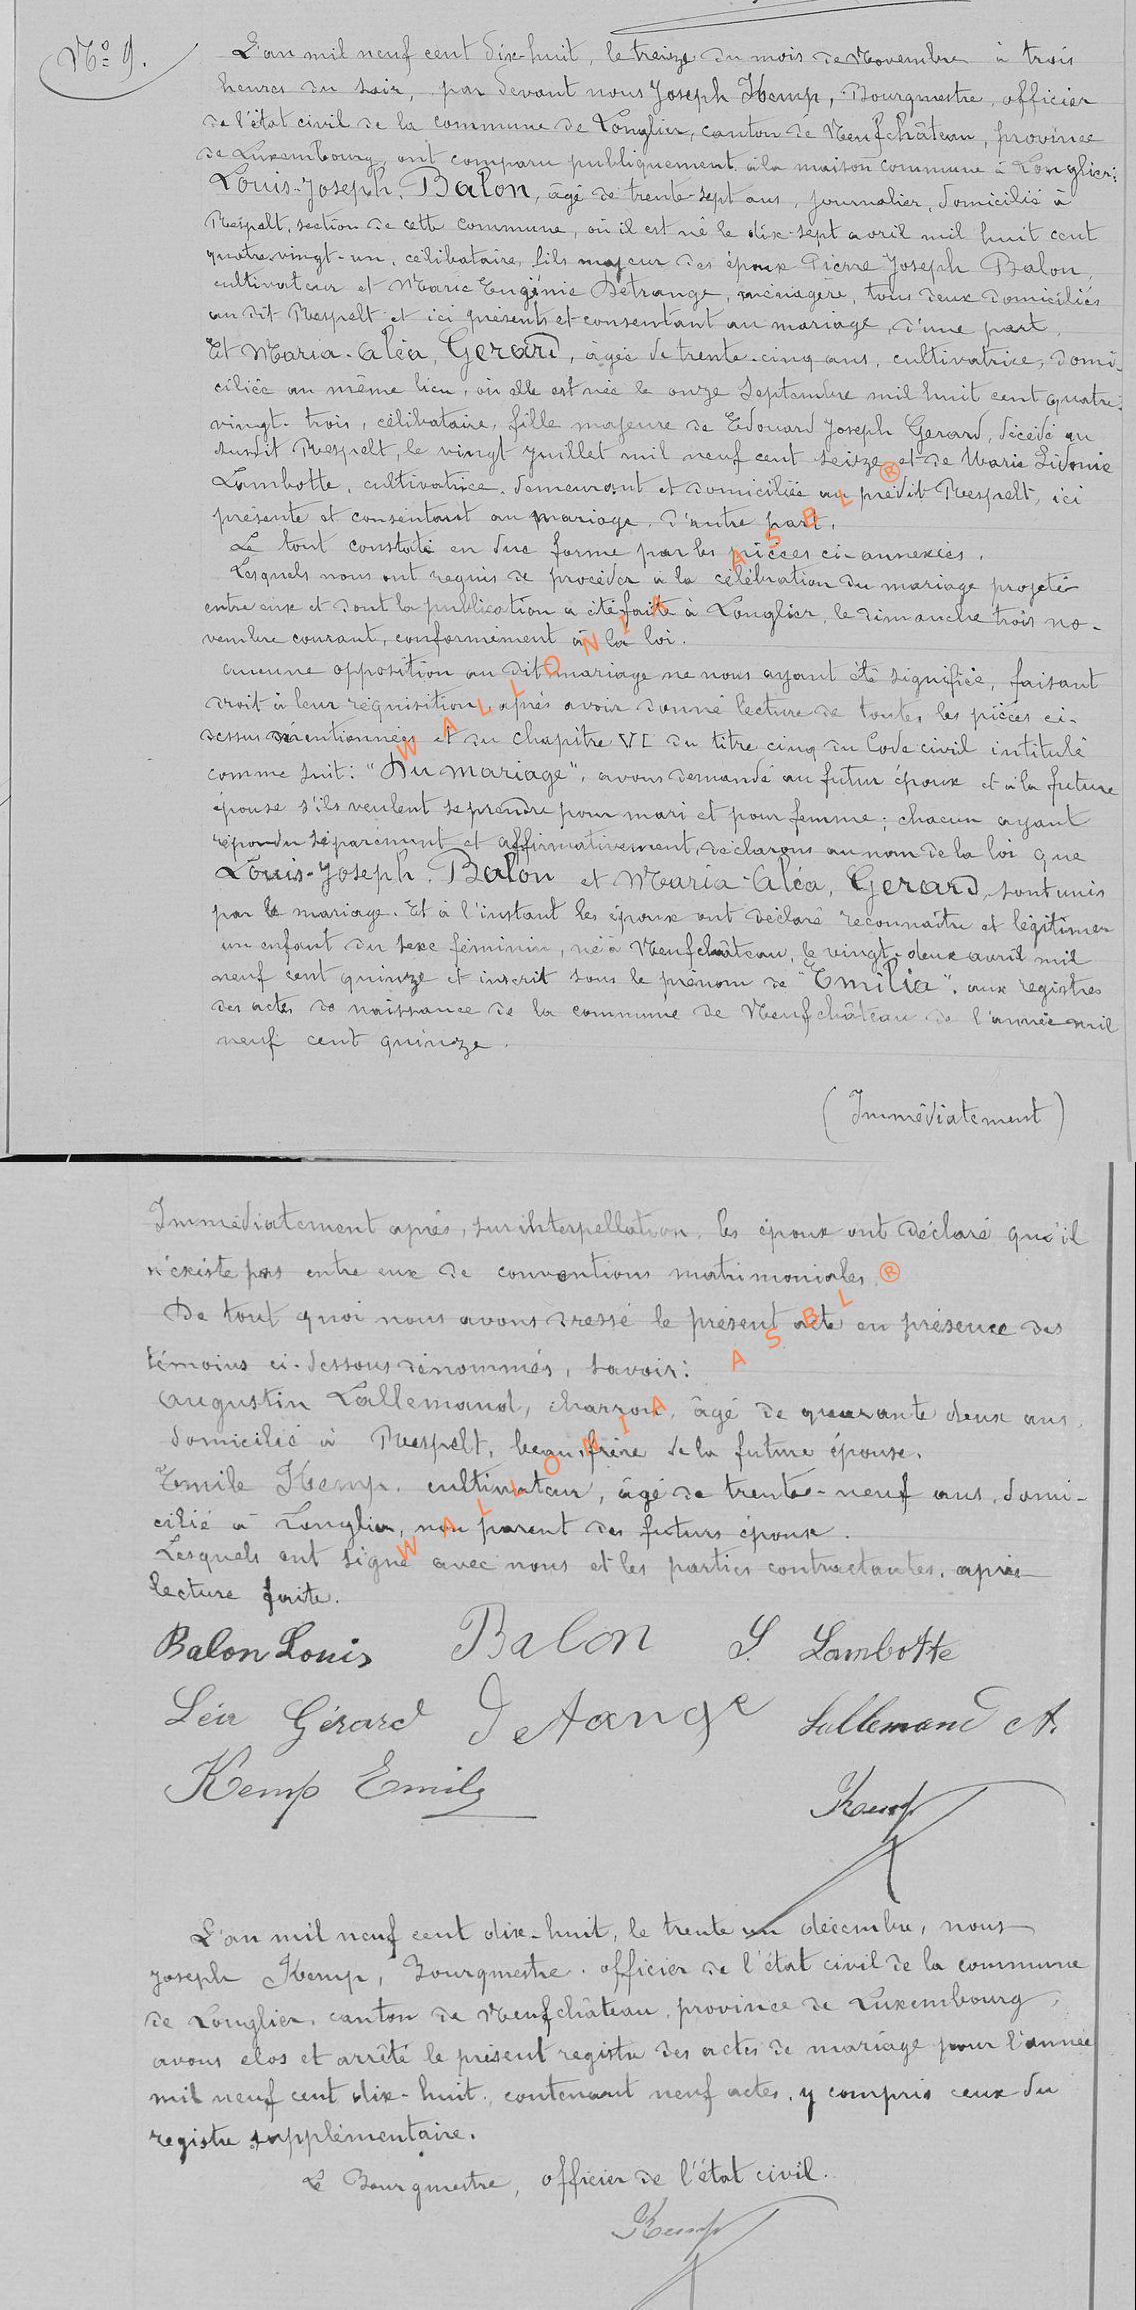 Nº 9.
L'an mil neuf cent dix-huit, le treize du mois de Novembre à trois
heures du soir, par devant nous Joseph Kemp, Bourgmestre, officier
de l'état civil de la commune de Longlier, canton de Neufchâteau, province
de Luxembourg, ont comparu publiquement à la maison commune à Longlier:
Louis-Joseph, Balon, âgé de trente-sept ans, journalier, domicilié à
Respelt, section de cette commune, où il est né le dix-sept avril mil huit cent
quatre-vingt-un, célibataire, fils majeur des époux Pierre Joseph Balon,
cultivateur et Marie Eugénie Détrange, ménagère, tous deux domiciliés
au dit Respelt et ici présents et consentant au mariage, d'une part,
Et Maria-Aléa, Gerard, âgée de trente-cinq ans, cultivatrice, domi-
ciliée au même lieu, où elle est née le onze Septembre mil huit cent quatre-
vingt-trois, célibataire, fille majeure de Edouard Joseph Gerard, décédé au
susdit Respelt, le vingt juillet mil neuf cent seize et de Marie Sidonie
Lambotte, cultivatrice, demeurant et domiciliée au prédit Respelt, ici
présente et consentant au mariage, d'autre part.
Le tout constaté en due forme par les pièces ci-annexées.
Lesquels nous ont requis de procéder à la célébration du mariage projeté
entre eux et dont la publication a été faite à Longlier, le dimanche trois no-
vembre courant, conformément à la loi.
Aucune opposition au dit mariage ne nous ayant été signifiée, faisant
droit à leur réquisition, après avoir donné lecture de toutes les pièces ci-
dessus mentionnées et du chapitre VI du titre cinq du Code civil intitulé
comme suit: "Du mariage", avons demandé au futur époux et à la future
épouse s'ils veulent se prendre pour mari et pour femme; chacun ayant
répondu séparément et affirmativement, déclarons au nom de la loi que
Louis-Joseph, Balon et Maria-Aléa, Gerard, sont unis
par le mariage. Et à l'instant les époux ont déclaré reconnaître et légitimer
un enfant du sexe féminin, né à Neufchâteau, le vingt-deux avril mil
neuf cent quinze et inscrit sous le prénom de "Emilia", aux registres
des actes de naissance de la commune de Neufchâteau de l'année mil
neuf cent quinze.
(Immédiatement)
Immédiatement après, sur interpellation, les époux ont déclaré qu'il
n'existe pas entre eux de conventions matrimoniales.
De tout quoi nous avons dressé le présent acte en présence des
témoins ci-dessous dénommés, savoir:
Augustin Lallemand, charron, âgé de quarante deux ans,
domicilié à Respelt, beau-frère de la future épouse.
Emile Kemp, cultivateur, âgé de trente-neuf ans, domi-
cilié à Longlier, non parent des futurs époux.
Lesquels ont signé avec nous et les parties contractantes, après
lecture faite.
Balon Louis Balon S. Lambotte
Léa Gérard Detrange Lallemand A.
Kemp Emile Kemp
L'an mil neuf cent dix-huit, le trente un décembre, nous
Joseph Kemp, Bourgmestre, officier de l'état civil de la commune
de Longlier, canton de Neufchâteau, province de Luxembourg,
avons clos et arrêté le présent registre des actes de mariage pour l'année
mil neuf cent dix-huit, contenant neuf actes, y compris ceux du
registre supplémentaire.
Le Bourgmestre, officier de l'état civil.
Kemp
WALLONIA ASBL ®
WALLONIA ASBL ®